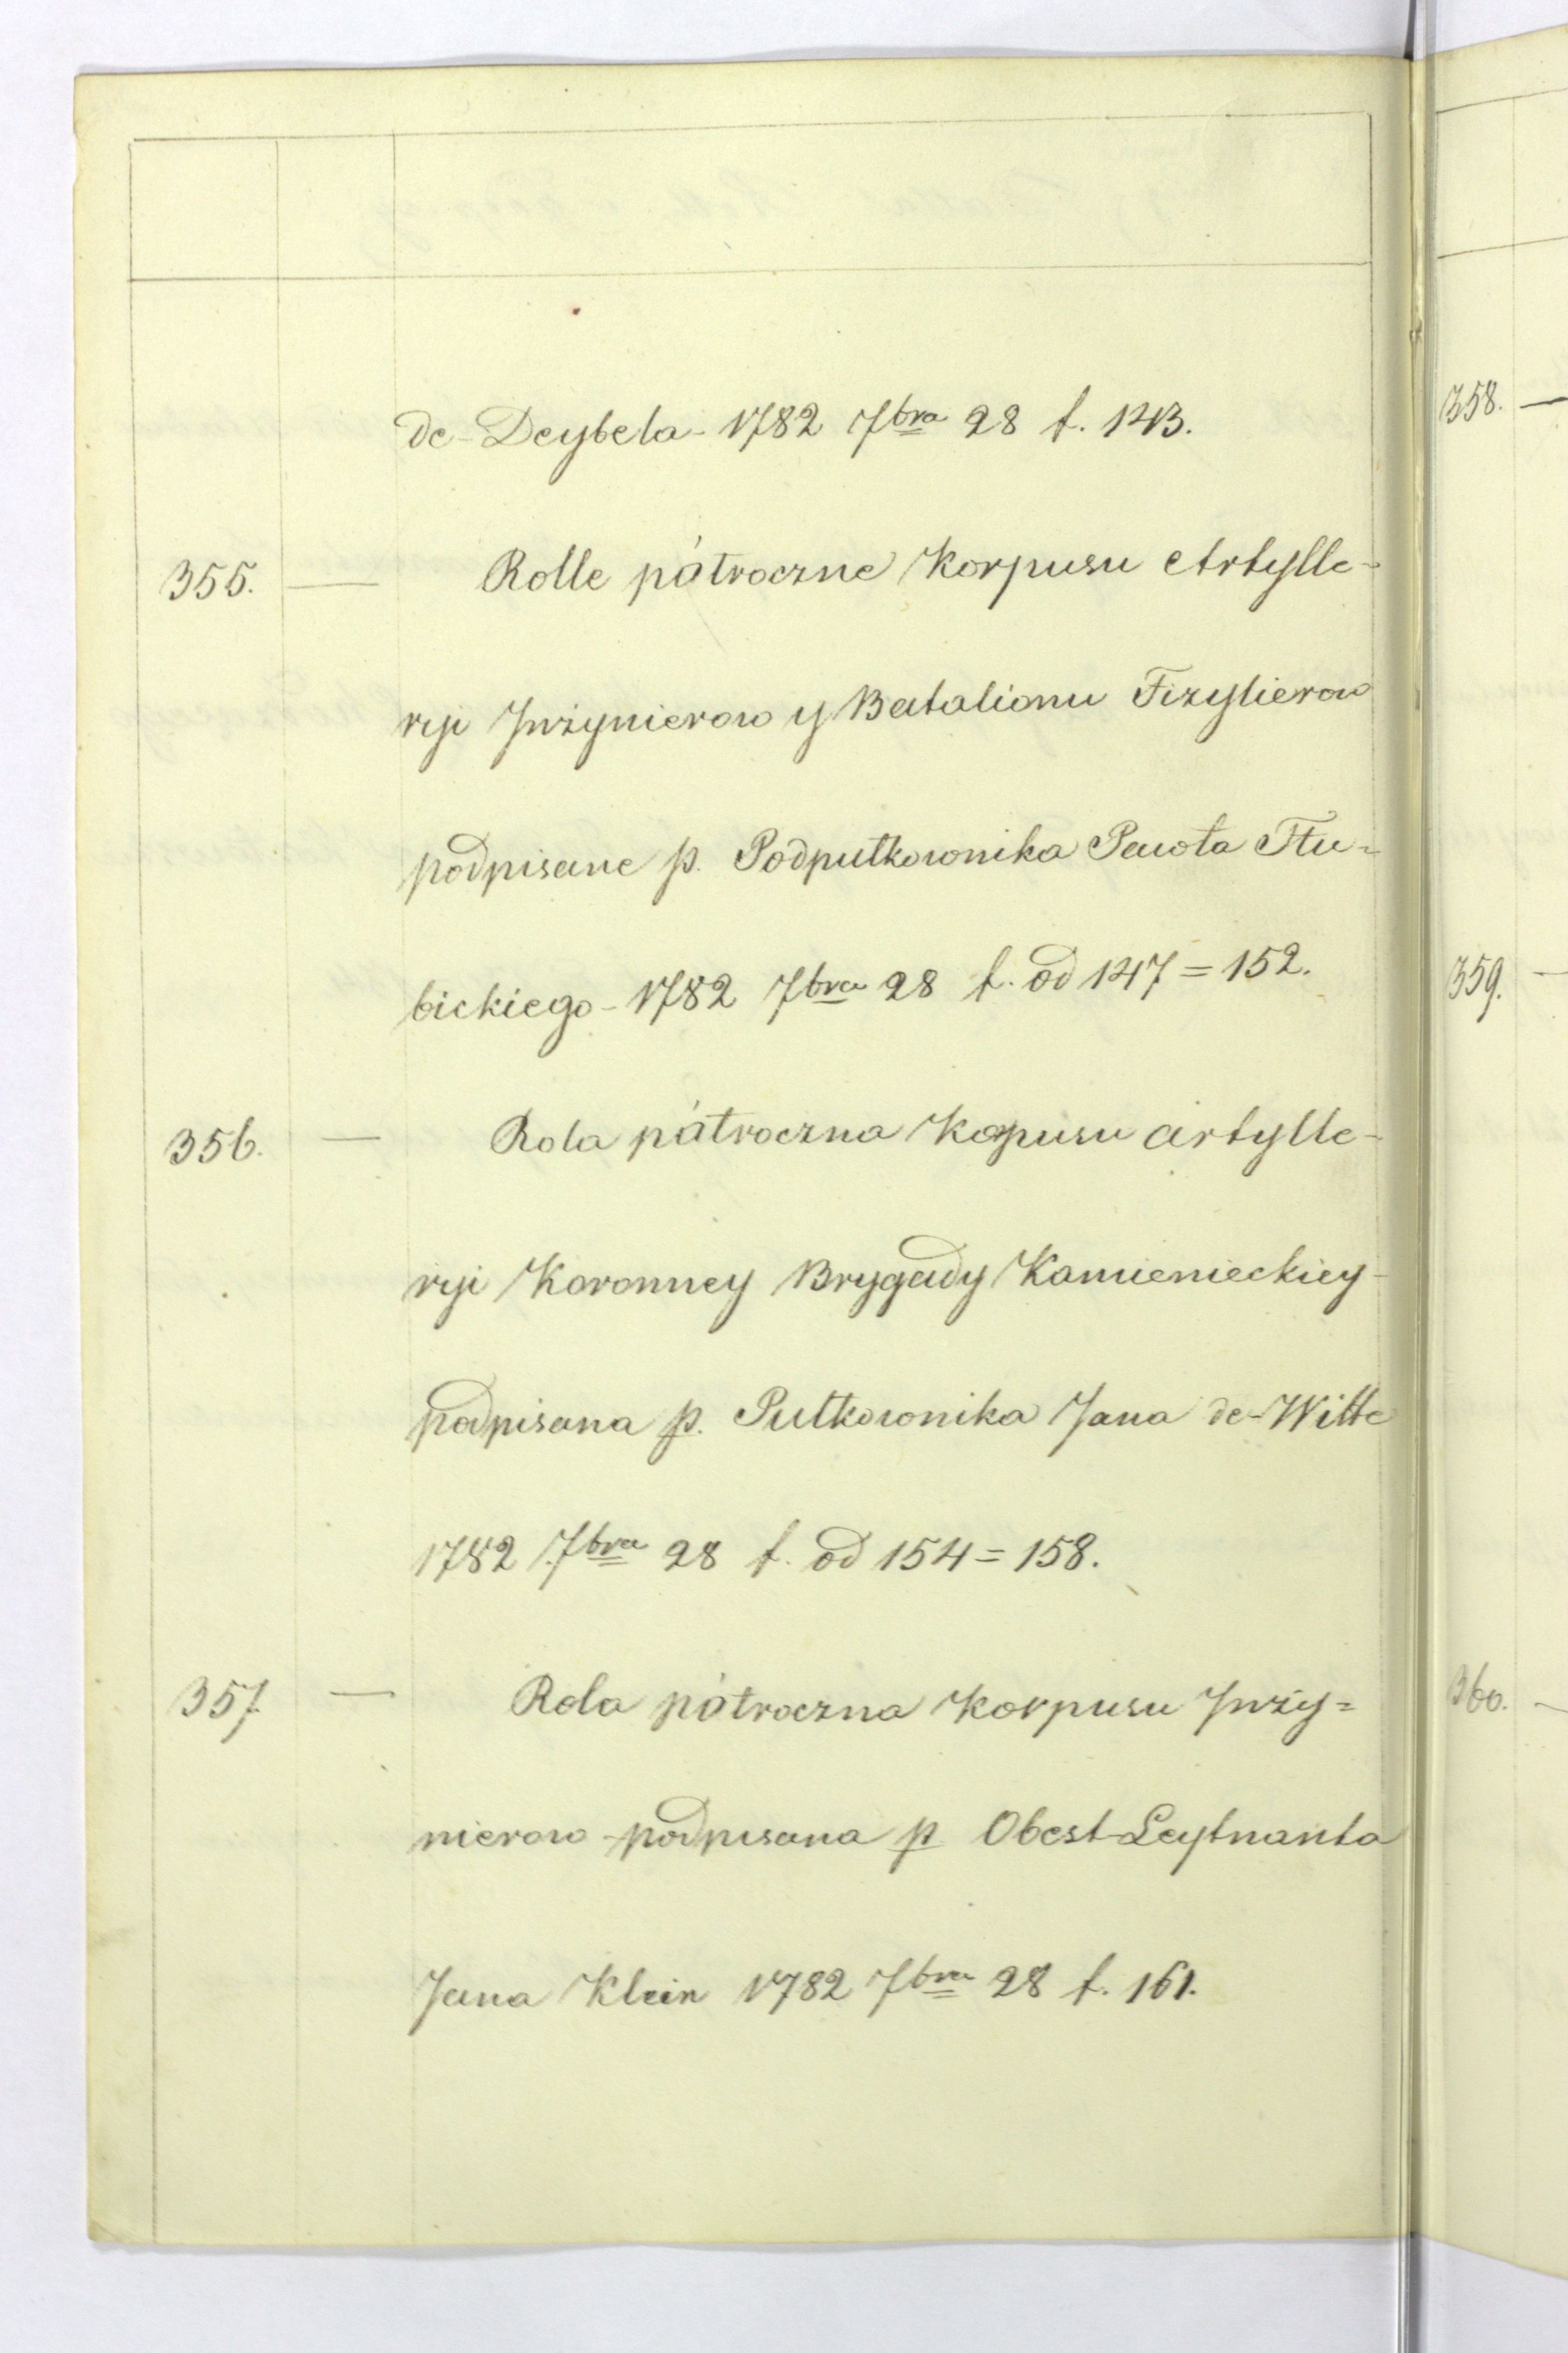 de-Deybela-1782 7bra 28 f. 143.
355. — Rolle półroczne Korpusu Artylle-
ryi Jnżynierow y Batalionu Fizylierow
podpisane p. Podpułkownika Pawła Hłu-
bickiego-1782 7bra 28 f. od 147=152.
356. — Rola półroczna Korpusu artylle-
ryi Koronney Brygady Kamienieckiey-
podpisana p. Pułkownika Jana de-Witte
1782 7bra 28 f. od 154=158.
357 — Rola półroczna Korpusu Jnży=
nierow-podpisana p Obest-Leytnanta
Jana Klein 1782 7bra 28 f. 161.
358. —
359. —
360. —